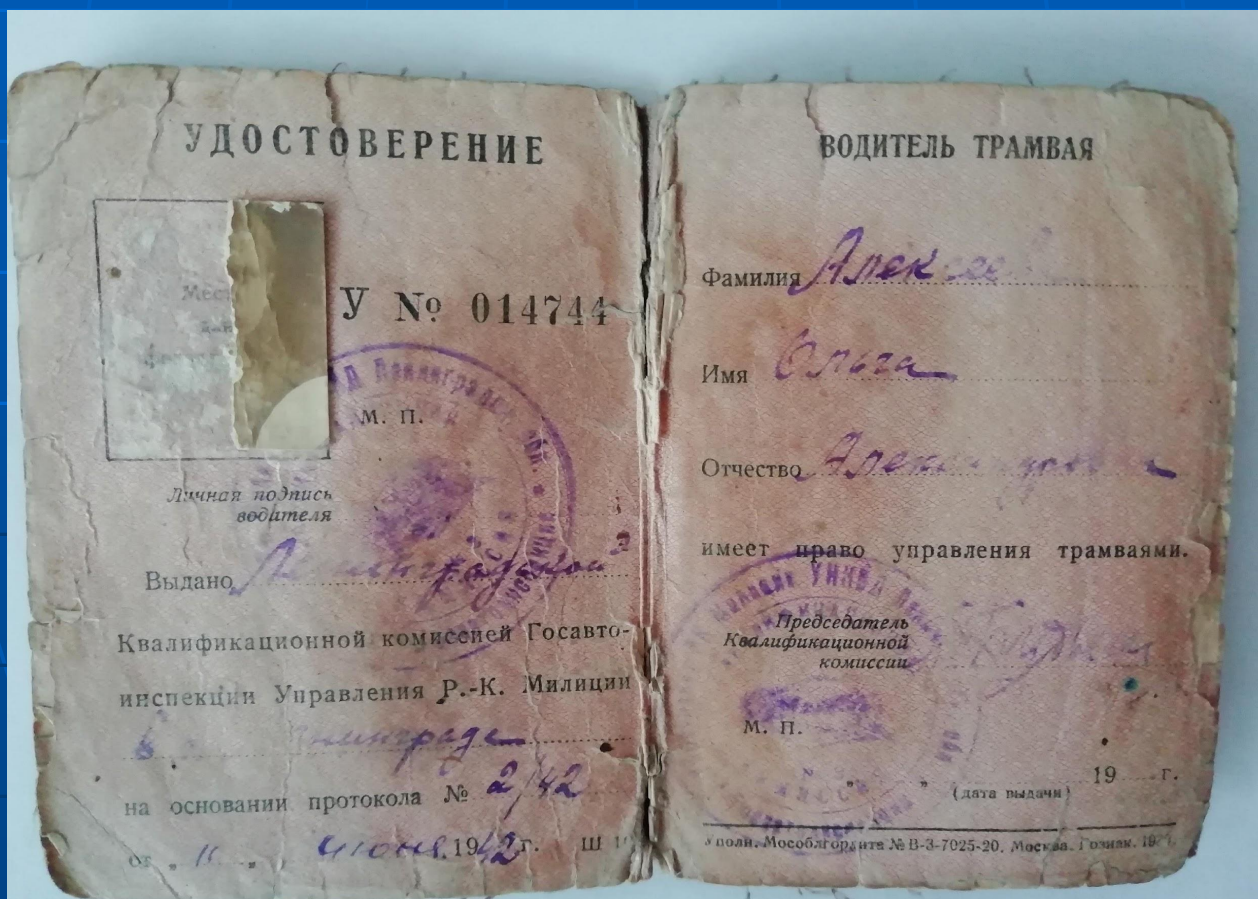 УДОСТОВЕРЕНИЕ
У № 014744
М. П.
Личная подпись
водителя
Выдано Ленинградской
Квалификационной комиссией Госавто-
инспекции Управления Р.-К. Милиции
на основании протокола № 2/42
от „ 11 „ июня 1942 г.
ВОДИТЕЛЬ ТРАМВАЯ
Фамилия Алексеева
Имя Ольга
Отчество Александровна
имеет право управления трамваями.
Председатель
Квалификационной
комиссии
М. П.
„ „ 19 г.
(дата выдачи)
Мособлгорлита № В-3-7025-20. Москва. Гознак.